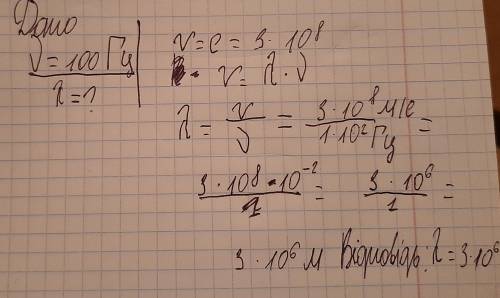 Дано
ν = 100 Гц
λ = ?
v = c = 3 · 10⁸
v = λ · ν
λ = v/ν = 3 · 10⁸ м/с / 1 · 10² Гц =
3 · 10⁸ · 10⁻² / 1 = 3 · 10⁶ / 1 =
3 · 10⁶ м Відповідь: λ = 3 · 10⁶